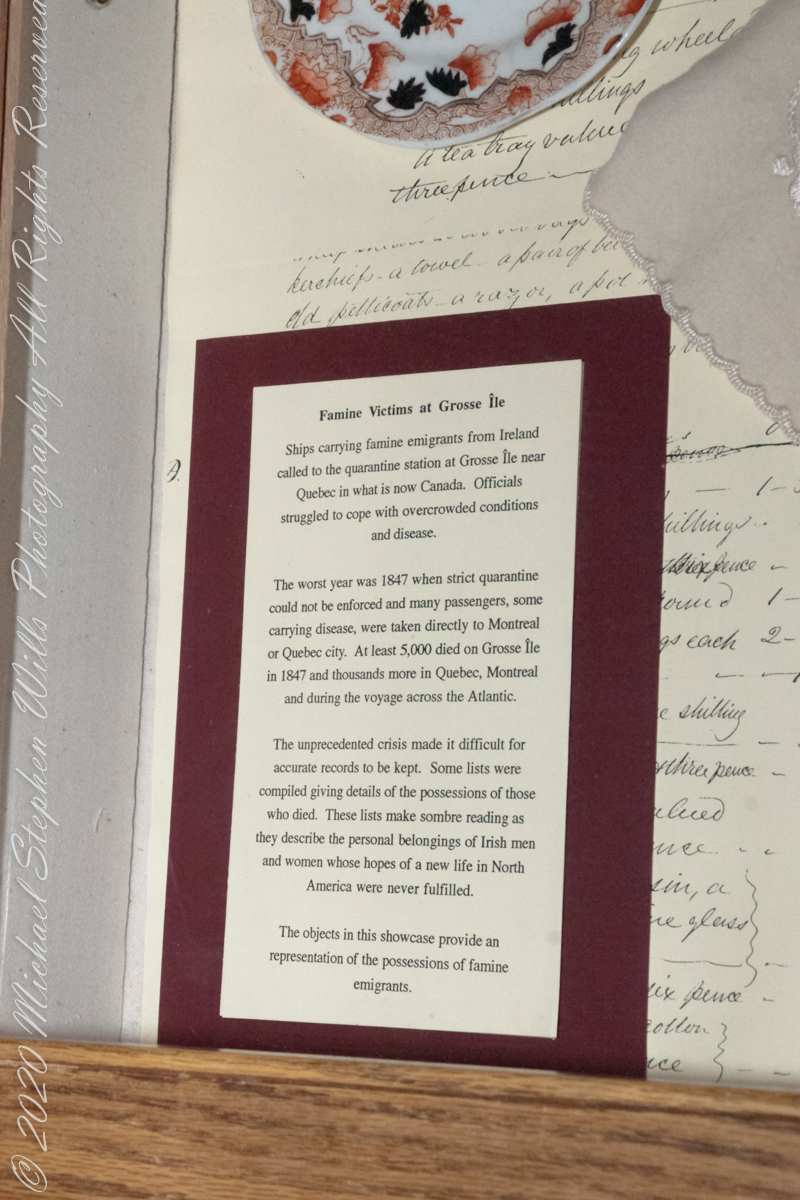 ng wheel
shillings
a tea tray value
threepence
kerchiefs - a towel - a pair of
old petticoats - a razor, a pot
Famine Victims at Grosse Île
Ships carrying famine emigrants from Ireland
called to the quarantine station at Grosse Île near
Quebec in what is now Canada. Officials
struggled to cope with overcrowded conditions
and disease.
The worst year was 1847 when strict quarantine
could not be enforced and many passengers, some
carrying disease, were taken directly to Montreal
or Quebec city. At least 5,000 died on Grosse Île
in 1847 and thousands more in Quebec, Montreal
and during the voyage across the Atlantic.
The unprecedented crisis made it difficult for
accurate records to be kept. Some lists were
compiled giving details of the possessions of those
who died. These lists make sombre reading as
they describe the personal belongings of Irish men
and women whose hopes of a new life in North
America were never fulfilled.
The objects in this showcase provide an
representation of the possessions of famine
emigrants.
pence
1-
hillings
pence
ound 1-
gs each 2-
shilling
threepence
alued
ence
sin, a
ne glass
six pence
cotton
nce
© 2020 Michael Stephen Wills Photography All Rights Reserved